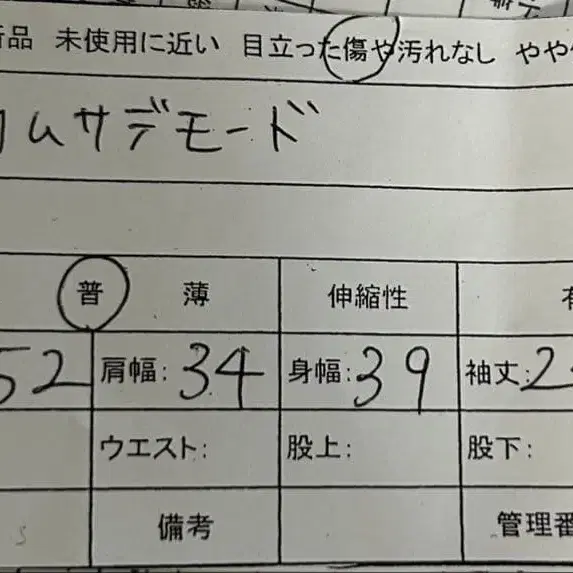 新品 未使用に近い 目立った傷や汚れなし やや
ムサデモード
普 薄 伸縮性 有
52 肩幅: 34 身幅: 39 袖丈: 2
ウエスト: 股上: 股下:
備考 管理番